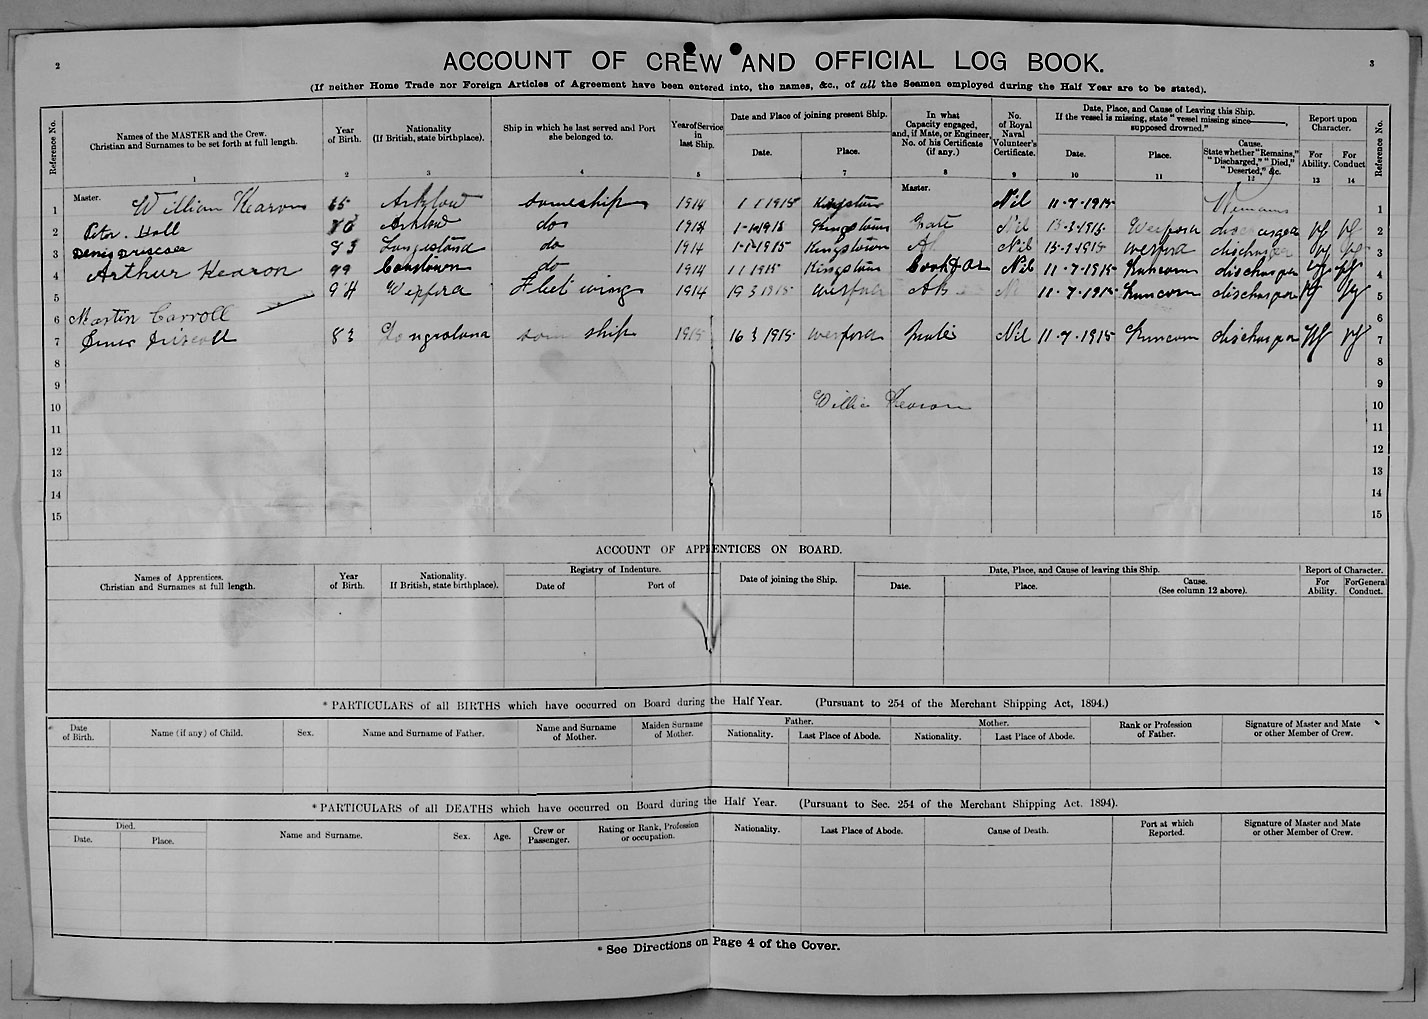 2
3
ACCOUNT OF CREW AND OFFICIAL LOG BOOK.
(If neither Home Trade nor Foreign Articles of Agreement have been entered into, the names, &c., of all the Seamen employed during the Half Year are to be stated).
Reference No. Names of the MASTER and the Crew. Christian and Surnames to be set forth at full length. Year of Birth. Nationality (If British, state birthplace). Ship in which he last served and Port she belonged to. Year of Service in last Ship. Date and Place of joining present Ship. Date. Place. In what Capacity engaged, and, if Mate, or Engineer, No. of his Certificate (if any.) No. of Royal Naval Volunteer's Certificate. Date, Place, and Cause of Leaving this Ship. If the vessel is missing, state "vessel missing since supposed drowned." Date. Place. Cause. State whether "Remains," "Discharged," "Died," "Deserted," &c. Report upon Character. For Ability. For Conduct Reference No.
1 2 3 4 5 7 8 9 10 11 12 13 14
1 Master. William Kearon 65 Arklow sameship 1914 1 1 1915 Kingstown Master. Nil 11-7-1915 Remains 1
2 Peter Hall Arklow do 1914 Kingstown Mate Nil Wexford discharged vg vg 2
3 Denis Driscoll 83 do 1914 1-1-1915 Kingstown Nil Wexford discharged vg vg 3
4 Arthur Kearon 99 do 1914 1 1 1915 Kingstown Nil 11-7-1915 Runcorn discharged vg vg 4
5 94 Wexford Fleet wing 1914 19 3 1915 Wexford AB 11-7-1915 Runcorn discharged vg vg 5
6 Martin Carroll 6
7 Driscoll 83 same ship 1915 16 3 1915 Wexford Mate Nil 11-7-1915 Runcorn discharged vg vg 7
8 8
9 9
10 William Kearon 10
11 11
12 12
13 13
14 14
15 15
ACCOUNT OF APPRENTICES ON BOARD.
Names of Apprentices. Christian and Surnames at full length. Year of Birth. Nationality. If British, state birthplace). Registry of Indenture. Date of Port of Date of joining the Ship. Date, Place, and Cause of leaving this Ship. Date. Place. Cause. (See column 12 above). Report of Character. For Ability. For General Conduct.
* PARTICULARS of all BIRTHS which have occurred on Board during the Half Year. (Pursuant to 254 of the Merchant Shipping Act, 1894.)
Date of Birth. Name (if any) of Child. Sex. Name and Surname of Father. Name and Surname of Mother. Maiden Surname of Mother. Father. Nationality. Last Place of Abode. Mother. Nationality. Last Place of Abode. Rank or Profession of Father. Signature of Master and Mate or other Member of Crew.
* PARTICULARS of all DEATHS which have occurred on Board during the Half Year. (Pursuant to Sec. 254 of the Merchant Shipping Act. 1894).
Died. Date. Place. Name and Surname. Sex. Age. Crew or Passenger. Rating or Rank, Profession or occupation. Nationality. Last Place of Abode. Cause of Death. Port at which Reported. Signature of Master and Mate or other Member of Crew.
* See Directions on Page 4 of the Cover.